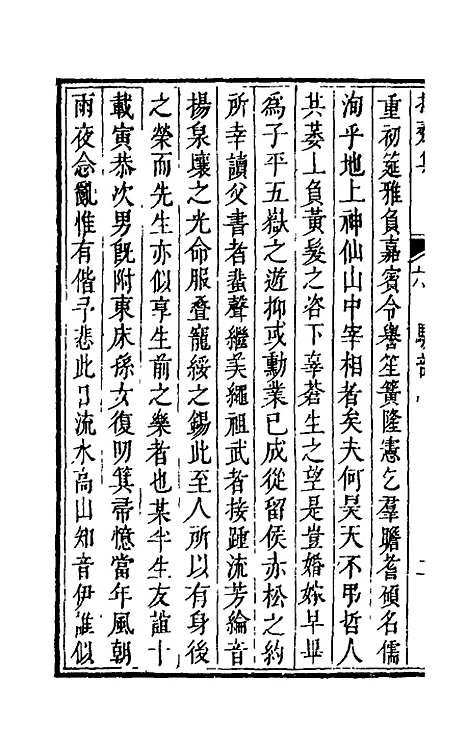 重初筵雅負嘉賓令譽笙簧隆憲乞羣瞻耆碩名儒
洵乎地上神仙山中宰相者矣夫何昊天不弔哲人
其萎上負黃髮之咨下辜蒼生之望是豈婚嫁早畢
為子平五嶽之遊抑或勳業已成從留侯赤松之約
所幸讀父書者蜚聲繼美繩祖武者接踵流芳綸音
揚泉壤之光命服疊寵綏之錫此至人所以有身後
之榮而先生亦似享生前之樂者也某半生友誼十
載寅恭次男既附東床孫女復叨箕帚憶當年風朝
雨夜念亂惟有偕予悲此日流水高山知音伊誰似